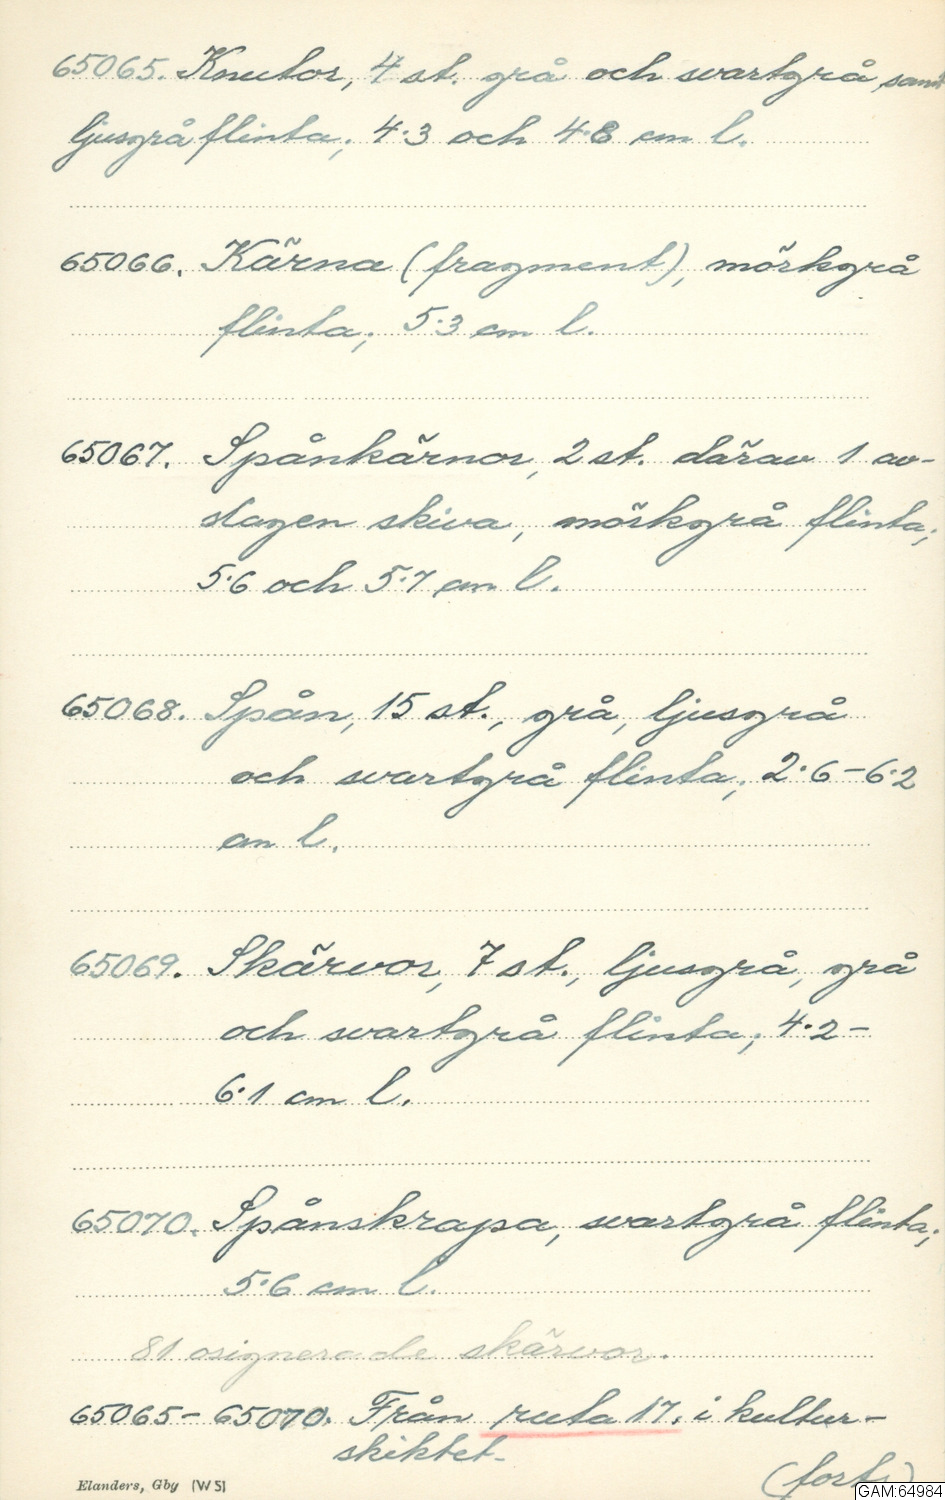 65065. Knutor, 4 st. grå och svartgrå, samt
ljusgrå flinta; 4·3 och 4·8 cm l.
65066. Kärna (fragment), mörkgrå
flinta; 5·3 cm l.
65067. Spånkärnor, 2 st. därav 1 av-
slagen skiva, mörkgrå flinta;
5·6 och 5·7 cm l.
65068. Spån, 15 st., grå, ljusgrå
och svartgrå flinta; 2·6-6·2
cm l.
65069. Skärvor, 7 st., ljusgrå, grå
och svartgrå flinta; 4·2-
6·1 cm l.
65070. Spånskrapa, svartgrå flinta;
5·6 cm l.
81 osignerade skärvor.
65065-65070. Från ruta 17. i kultur-
skiktet.
(forts)
Elanders, Gby (W5)
GAM:64984